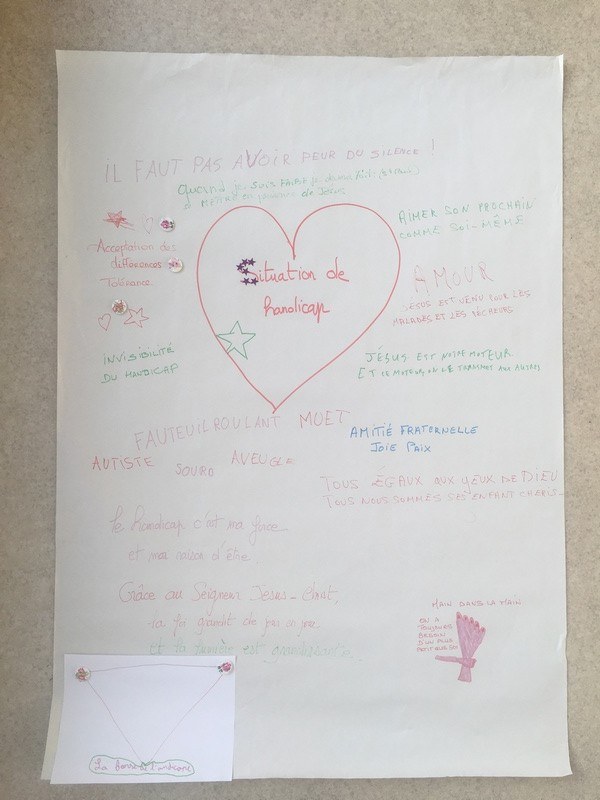 IL FAUT PAS AVOIR PEUR DU SILENCE !
Quand je suis FAIBLE
de Jésus
AIMER SON PROCHAIN
COMME SOI-MÊME
Acceptation des
différences
Tolérance
Situation de
handicap
AMOUR
JÉSUS EST VENU POUR LES
MALADES ET LES PÊCHEURS
INVISIBILITÉ
DU HANDICAP
JÉSUS EST NOTRE MOTEUR
ET CE MOTEUR, ON LE TRANSMET AUX AUTRES
FAUTEUIL ROULANT MUET
AUTISTE SOURD AVEUGLE
AMITIÉ FRATERNELLE
JOIE PAIX
TOUS ÉGAUX AUX YEUX DE DIEU
TOUS NOUS SOMMES SES ENFANT CHERIS
Le handicap, c'est ma force
et ma raison d'être
Grâce au Seigneur Jesus-Christ,
la foi grandit de jour en jour
et la lumière est grandissante
MAIN DANS LA MAIN
ON A
TOUJOURS
BESOIN
D'UN PLUS
PETIT QUE SOI
La